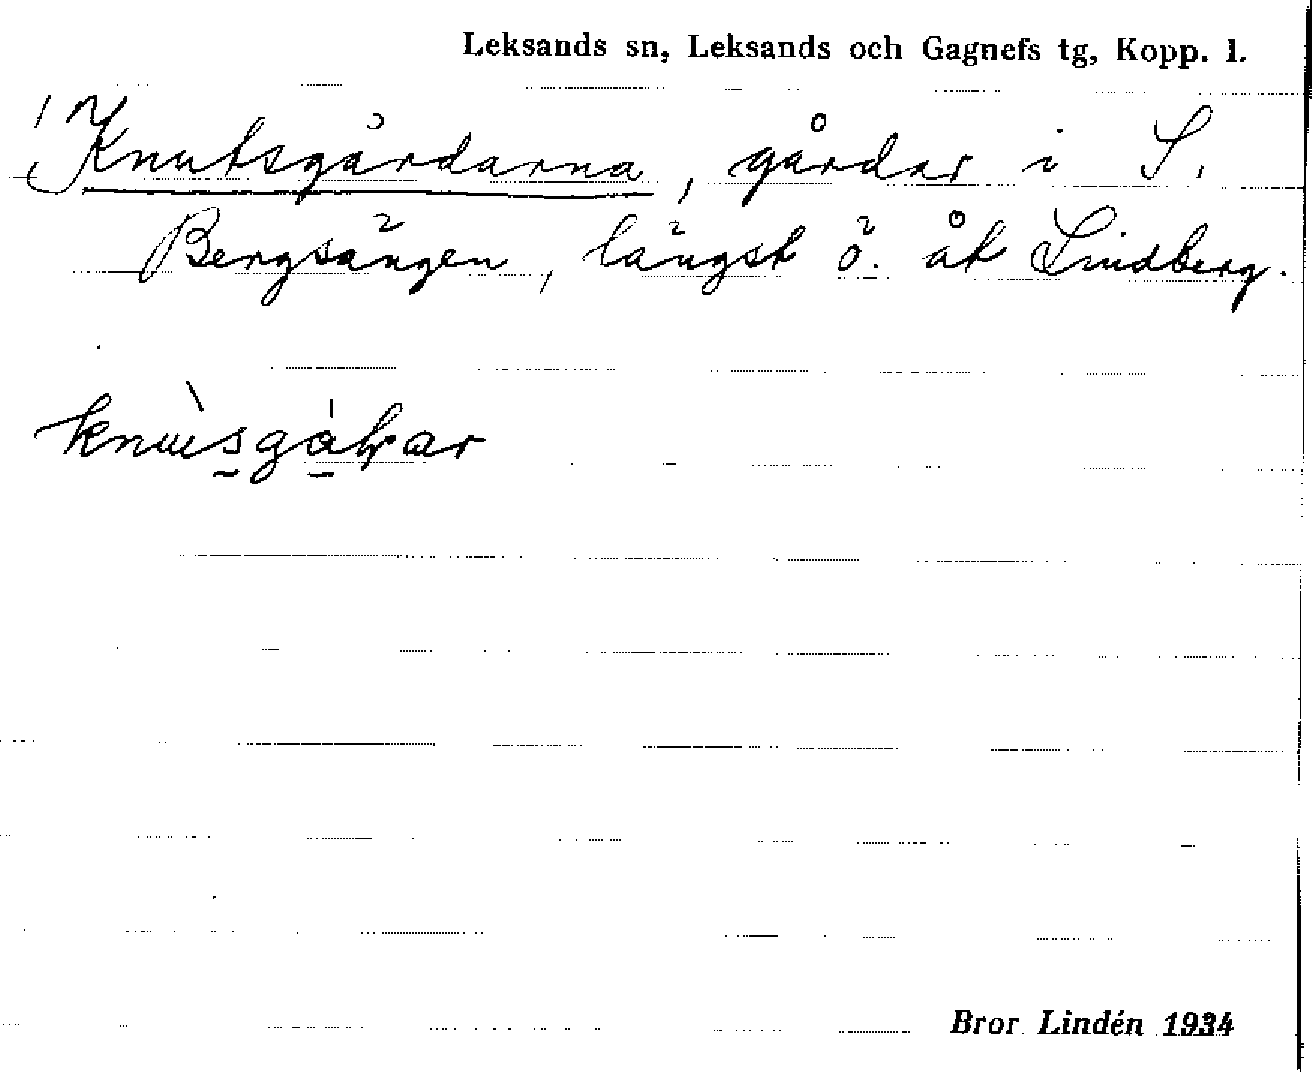 Leksands sn, Leksands och Gagnefs tg, Kopp. l.
Knutsgårdarna, gårdar i S.
Bergsängen, längst ö. åt Lindberg.
Bror Lindén 1934